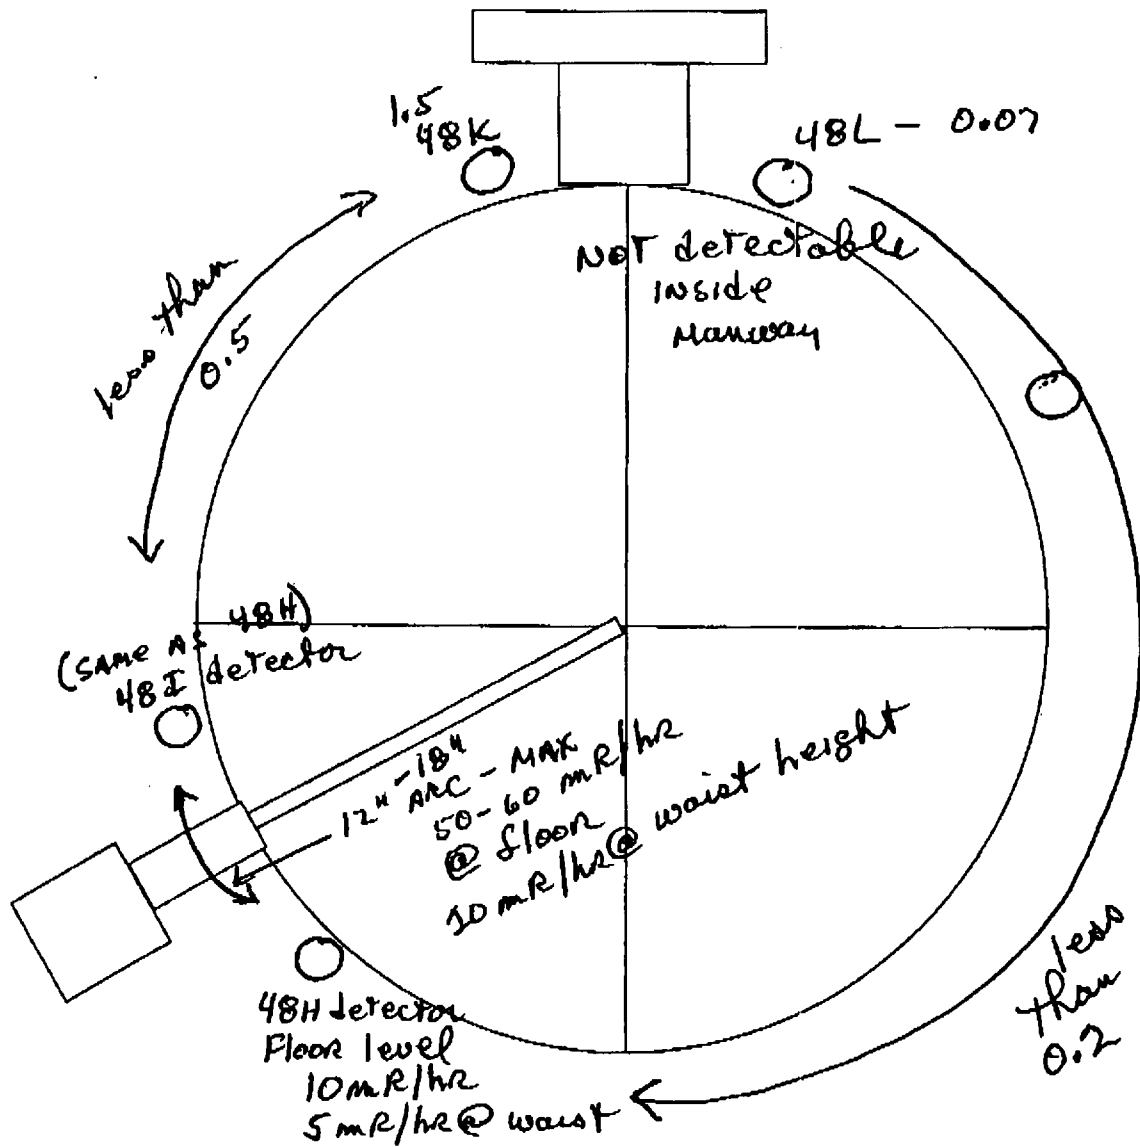 1.5
48K
48L - 0.07
NOT detectable
INside
Manway
less than
0.5
(SAME AS 48H)
48I detector
12"-18"
ARC - MAX
50-60 mR/hR
@ floor
10 mR/hR @ waist height
48H detector
Floor level
10 mR/hR
5 mR/hR @ waist
less
than
0.2